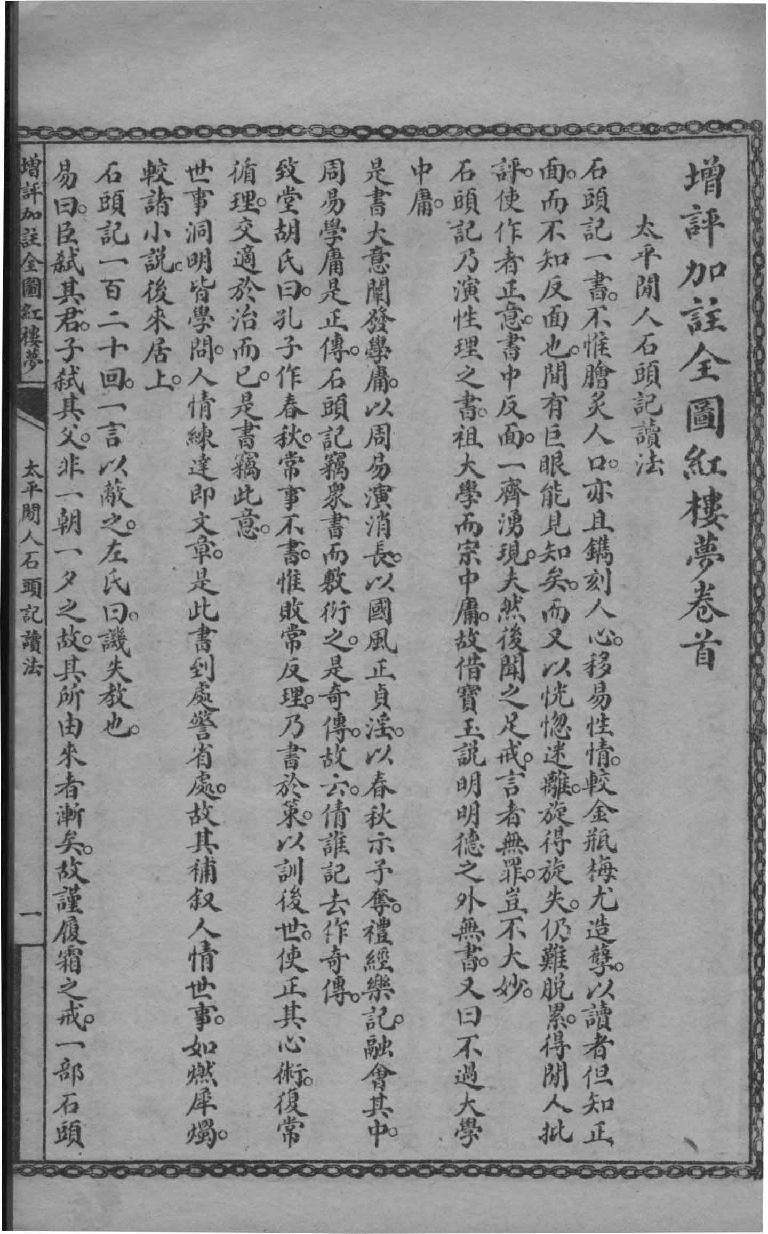 增評加註全圖紅樓夢卷首
太平閒人石頭記讀法
石頭記一書。不惟膾炙人口。亦且鐫刻人心。移易性情。較金瓶梅尤造孽。以讀者但知正
面。而不知反面也。間有巨眼能見知矣。而又以恍惚迷離。旋得旋失。仍難脫累。得閒人批
評。使作者正意。書中反面。一齊湧現。夫然後聞之足戒。言者無罪。豈不大妙。
石頭記乃演性理之書。祖大學而宗中庸。故借寶玉說明明德之外無書。又曰不過大學
中庸。
是書大意闡發學庸。以周易演消長。以國風正貞淫。以春秋示予奪。禮經樂記。融會其中。
周易學庸是正傳。石頭記竊衆書而敷衍之。是奇傳。故云。倩誰記去作奇傳。
致堂胡氏曰。孔子作春秋。常事不書。惟敗常反理。乃書於策。以訓後世。使正其心術。復常
循理。交適於治而已。是書竊此意。
世事洞明皆學問。人情練達即文章。是此書到處警省處。故其補叙人情世事。如燃犀燭。
較諸小說。後來居上。
石頭記一百二十回。一言以蔽之。左氏曰。譏失教也。
易曰。臣弑其君。子弑其父。非一朝一夕之故。其所由來者漸矣。故謹履霜之戒。一部石頭
增評加註全圖紅樓夢
太平閒人石頭記讀法
一